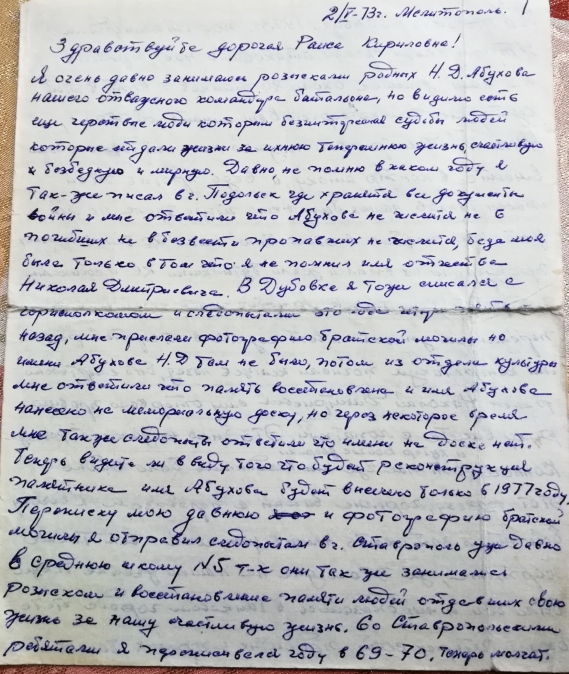 2/V-73г. Мелитополь.
Здравствуйте дорогая Раиса Кириловна!
Я очень давно занимаюсь розысками родных Н.Д. Абухова
нашего отважного командира батальона, но видимо есть
еще черствые люди которым безинтересная судьбы людей
которые отдали жизни за ихнюю теперешнюю жизнь, счастливую
и безбедную и мирную. Давно, не помню в каком году я
так-же писал в г. Подольск где хранятся все документы
войны и мне ответили что Абухова не числится не в
погибших не в безвести пропавших не числится, беда моя
была только в том что я не помнил имя отчества
Николая Дмитриевича. В Дубовке я тоже списался с
горисполкомом и следопытами это
назад, мне прислали фотографию братской могилы но
имени Абухова Н.Д там не было, потом из отдела культуры
мне ответили что память восстановлена и имя Абухова
нанесено на мемориальную доску, но через некоторое время
мне так же следопыты ответили что имени на доске нет.
Теперь видите ли ввиду того что будет реконструкция
памятника имя Абухова будет внесено только в 1977 году.
Переписку мою давнюю и фотографию братской
могилы я отправил следопытам в г. Ставрополь уже давно
в среднюю школу №5 т-к они так же занимались
розыском и восстановление памяти людей отдавших свою
жизнь за нашу счастливую жизнь. Со Ставропольскими
ребятами я переписывался году в 69-70. Теперь молчат.